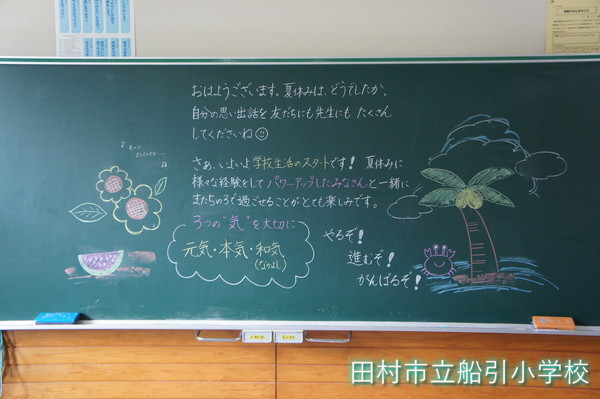 おはようございます。夏休みは、どうでしたか。
自分の思い出話を友だちにも先生にもたくさん
してくださいね
さぁ、いよいよ学校生活のスタートです！夏休みに
様々な経験をしてパワーアップしたみなさんと一緒に
またちの3で過ごせることがとても楽しみです。
3つの"気"を大切に
元気・本気・和気
(なかよし)
やるぞ！
進むぞ！
がんばるぞ！
田村市立船引小学校